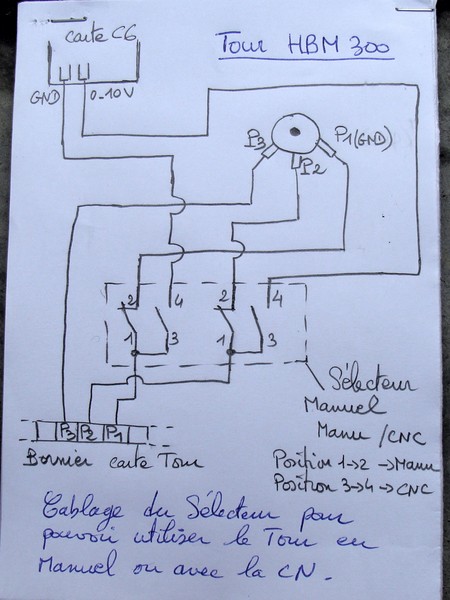 carte C6
Tour HBM 300
GND
0-10V
P3
P1 (GND)
P2
2
4
2
4
1
3
1
3
Sélecteur
Manuel
Manu / CNC
P3 P2 P1
Bornier carte Tour
Position 1→2 → Manu
Position 3→4 → CNC
Cablage du Sélecteur pour
pouvoir utiliser le Tour en
Manuel ou avec la CN.